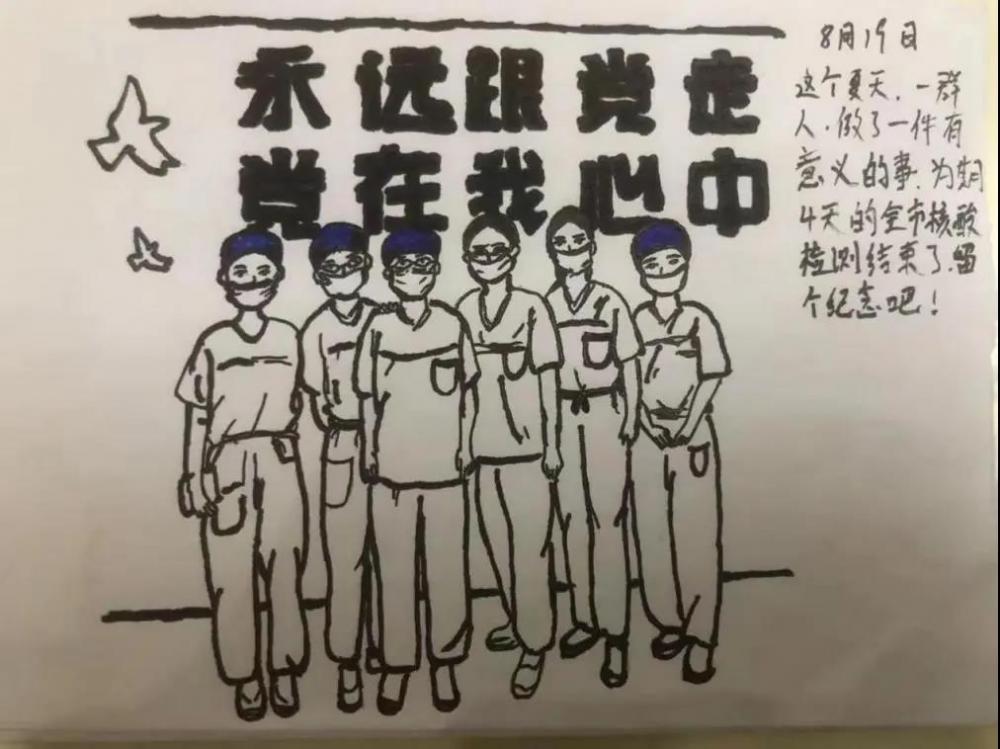 永远跟党走
党在我心中
8月19日
这个夏天，一群
人，做了一件有
意义的事，为期
4天的全市核酸
检测结束了，留
个纪念吧！